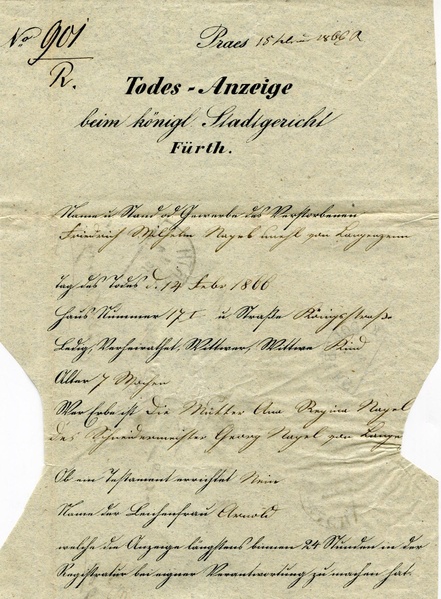 No 901
Praes 15 Febr 1866
R.
Todes-Anzeige
beim königl. Stadtgericht
Fürth.
Name u Stand od Gewerbe des Verstorbenen
Friedrich Wilhelm Nagel von Langenzenn
Tag des Todes d. 14 Febr 1866
Haus Nummer 17 I u Straße Königsstraße
Ledig, Verheirathet, Wittwer, Wittwe Kind
Alter 7 Wochen
Wer Erbe ist Die Mutter Ana Regina Nagel
des Schneidermeister Georg Nagel von Lange
Ob ein Testament errichtet Nein
Name der Leichenfrau Arnold
welche die Anzeige längstens binnen 24 Stunden in der
Registratur bei eigner Verantwortung zu machen hat.